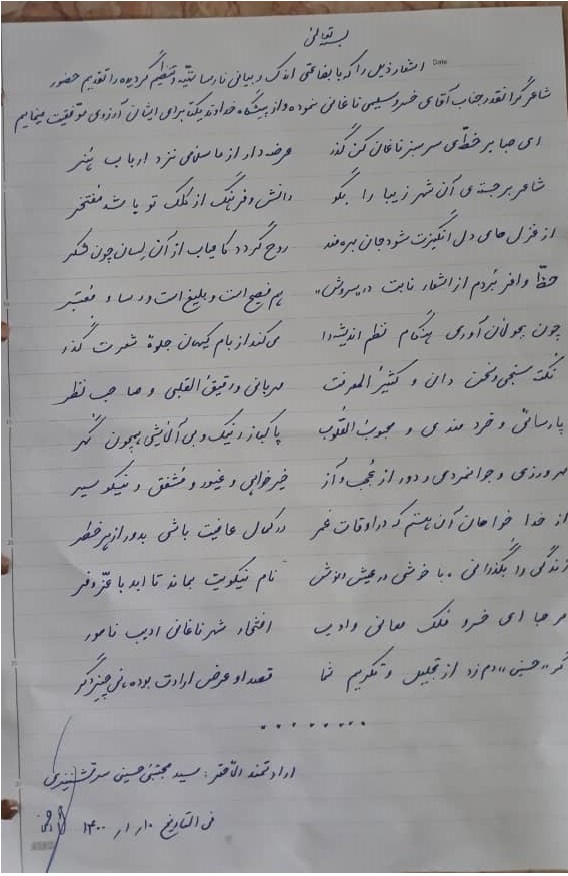 بسمه تعالی
Date
اشعار ذیل را که با بضاعتی اندک و بیانی نارسا تهیه و تنظیم گردیده را تقدیم حضور
شاعر گرانقدر جناب آقای خسرو سلیمی ناغانی نموده و از پیشگاه خداوند یکتا برای ایشان آرزوی موفقیت مینمایم
ای صبا بر خطّه‌ی سرسبز ناغان کن گذر عرضه دار از ما سلامی نزد ارباب هنر
شاعر برجسته‌ی آن شهر زیبا را بگو دانش و فرهنگ از کلک تو باشد مفتخر
از غزل های دل انگیزت شود جان بهره مند روح گردد کامیاب از آن لسان چون شکر
حظّ وافر بُردم از اشعار نابت در "سروش" هم فصیح است و بلیغ است و رسا و معتبر
چون بجولان آوری هنگام نظم اندیشه را می‌کند از بام کیهان جلوهٔ شعرت گذر
نکته سنجی و سخن دان و کثیرُ المعرفت مهربانی و رقیقُ القلبی و صاحب نظر
پارسائی و خرد مندی و محبوبُ القلوب پاکباز و نیک و بی آلایشی همچون گهر
مهرورزی و جوانمردی و دور از عُجب و آز خیرخواهی و غیور و مُشفق و نیکو سیر
از خدا خواهان آن هستم که در اوقات عمر در کمال عافیت باشی بدور از هر خطر
زندگی را بگذرانی با خوشی در عیش و نوش نام نیکویت بماند تا ابد با عزّ و فر
مرحبا ای خسرو ملک معانی و ادب افتخار شهر ناغانی ادیب نامور
گر "حسینی" دم زد از تجلیل و تکریم شما قصد او عرض ارادت بوده، نی چیز دگر
ارادتمند الاحقر: سید مجتبی حسینی سرتشنیزی
فی التاریخ ۱۴۰۰/۱/۱۰